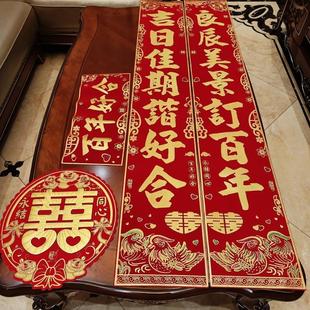 良辰美景訂百年
吉日佳期諧好合
百年好合
永结
同心
囍
囍
囍